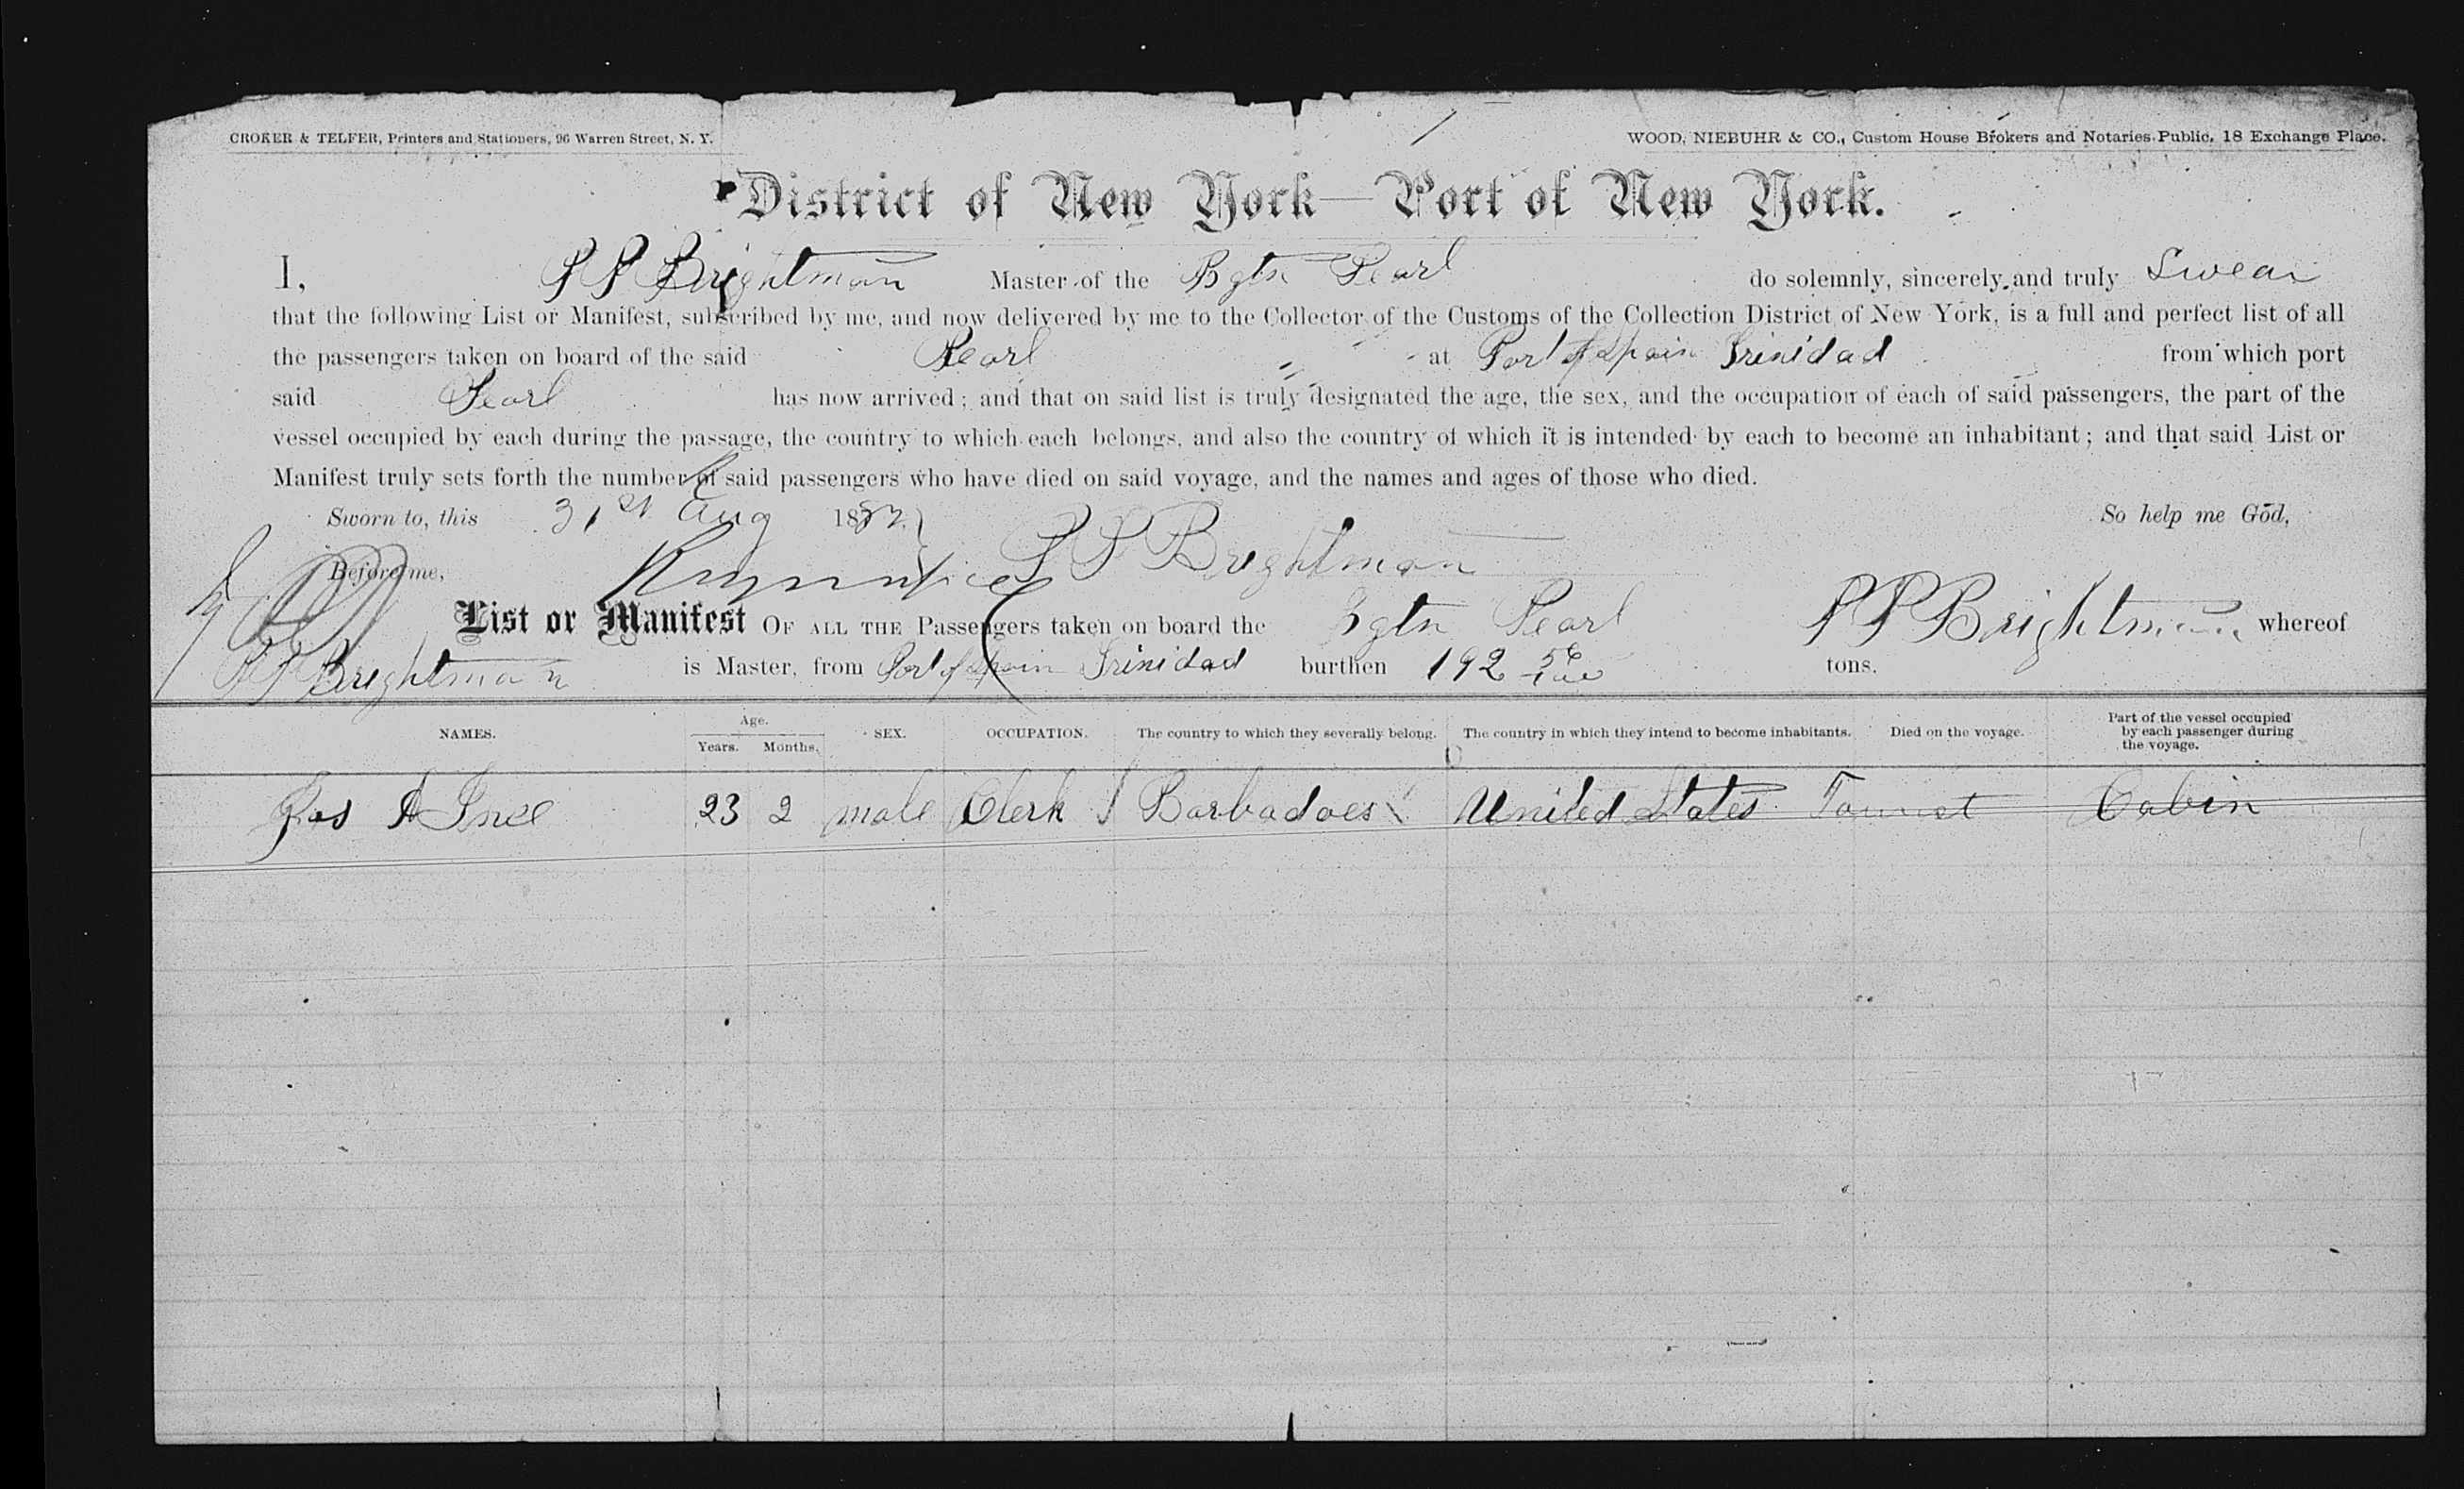 CROKER & TELFER, Printers and Stationers, 96 Warren Street, N. Y. WOOD, NIEBUHR & CO., Custom House Brokers and Notaries Public, 18 Exchange Place.
District of New York—Port of New York.
I, P P Brightman Master of the Bgtn Pearl do solemnly, sincerely and truly Swear
that the following List or Manifest, subscribed by me, and now delivered by me to the Collector of the Customs of the Collection District of New York, is a full and perfect list of all
the passengers taken on board of the said Pearl at Port of Spain Trinidad from which port
said Pearl has now arrived; and that on said list is truly designated the age, the sex, and the occupation of each of said passengers, the part of the
vessel occupied by each during the passage, the country to which each belongs, and also the country of which it is intended by each to become an inhabitant; and that said List or
Manifest truly sets forth the number of said passengers who have died on said voyage, and the names and ages of those who died.
Sworn to, this 31st Aug 18 So help me God,
Before me, P P Brightman
List or Manifest OF ALL THE Passengers taken on board the Bgtn Pearl P P Brightman whereof
P P Brightman is Master, from Port of Spain Trinidad burthen 192 tons.
NAMES. Age. Years. Months. SEX. OCCUPATION. The country to which they severally belong. The country in which they intend to become inhabitants. Died on the voyage. Part of the vessel occupied by each passenger during the voyage.
Jas A Ince 23 2 male Clerk Barbadoes United States Tourist Cabin